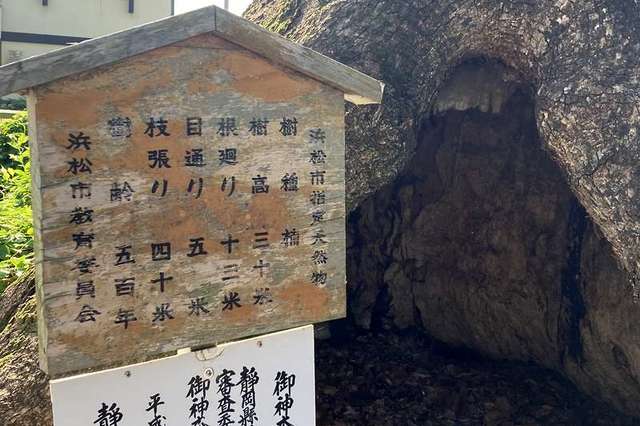 浜松市指定天然物
樹種 楠
樹高 三十米
根廻り 十三米
目通り 五米
枝張り 四十米
樹齢 五百年
浜松市教育委員会
御神
静岡県
審査
御神
平成
静